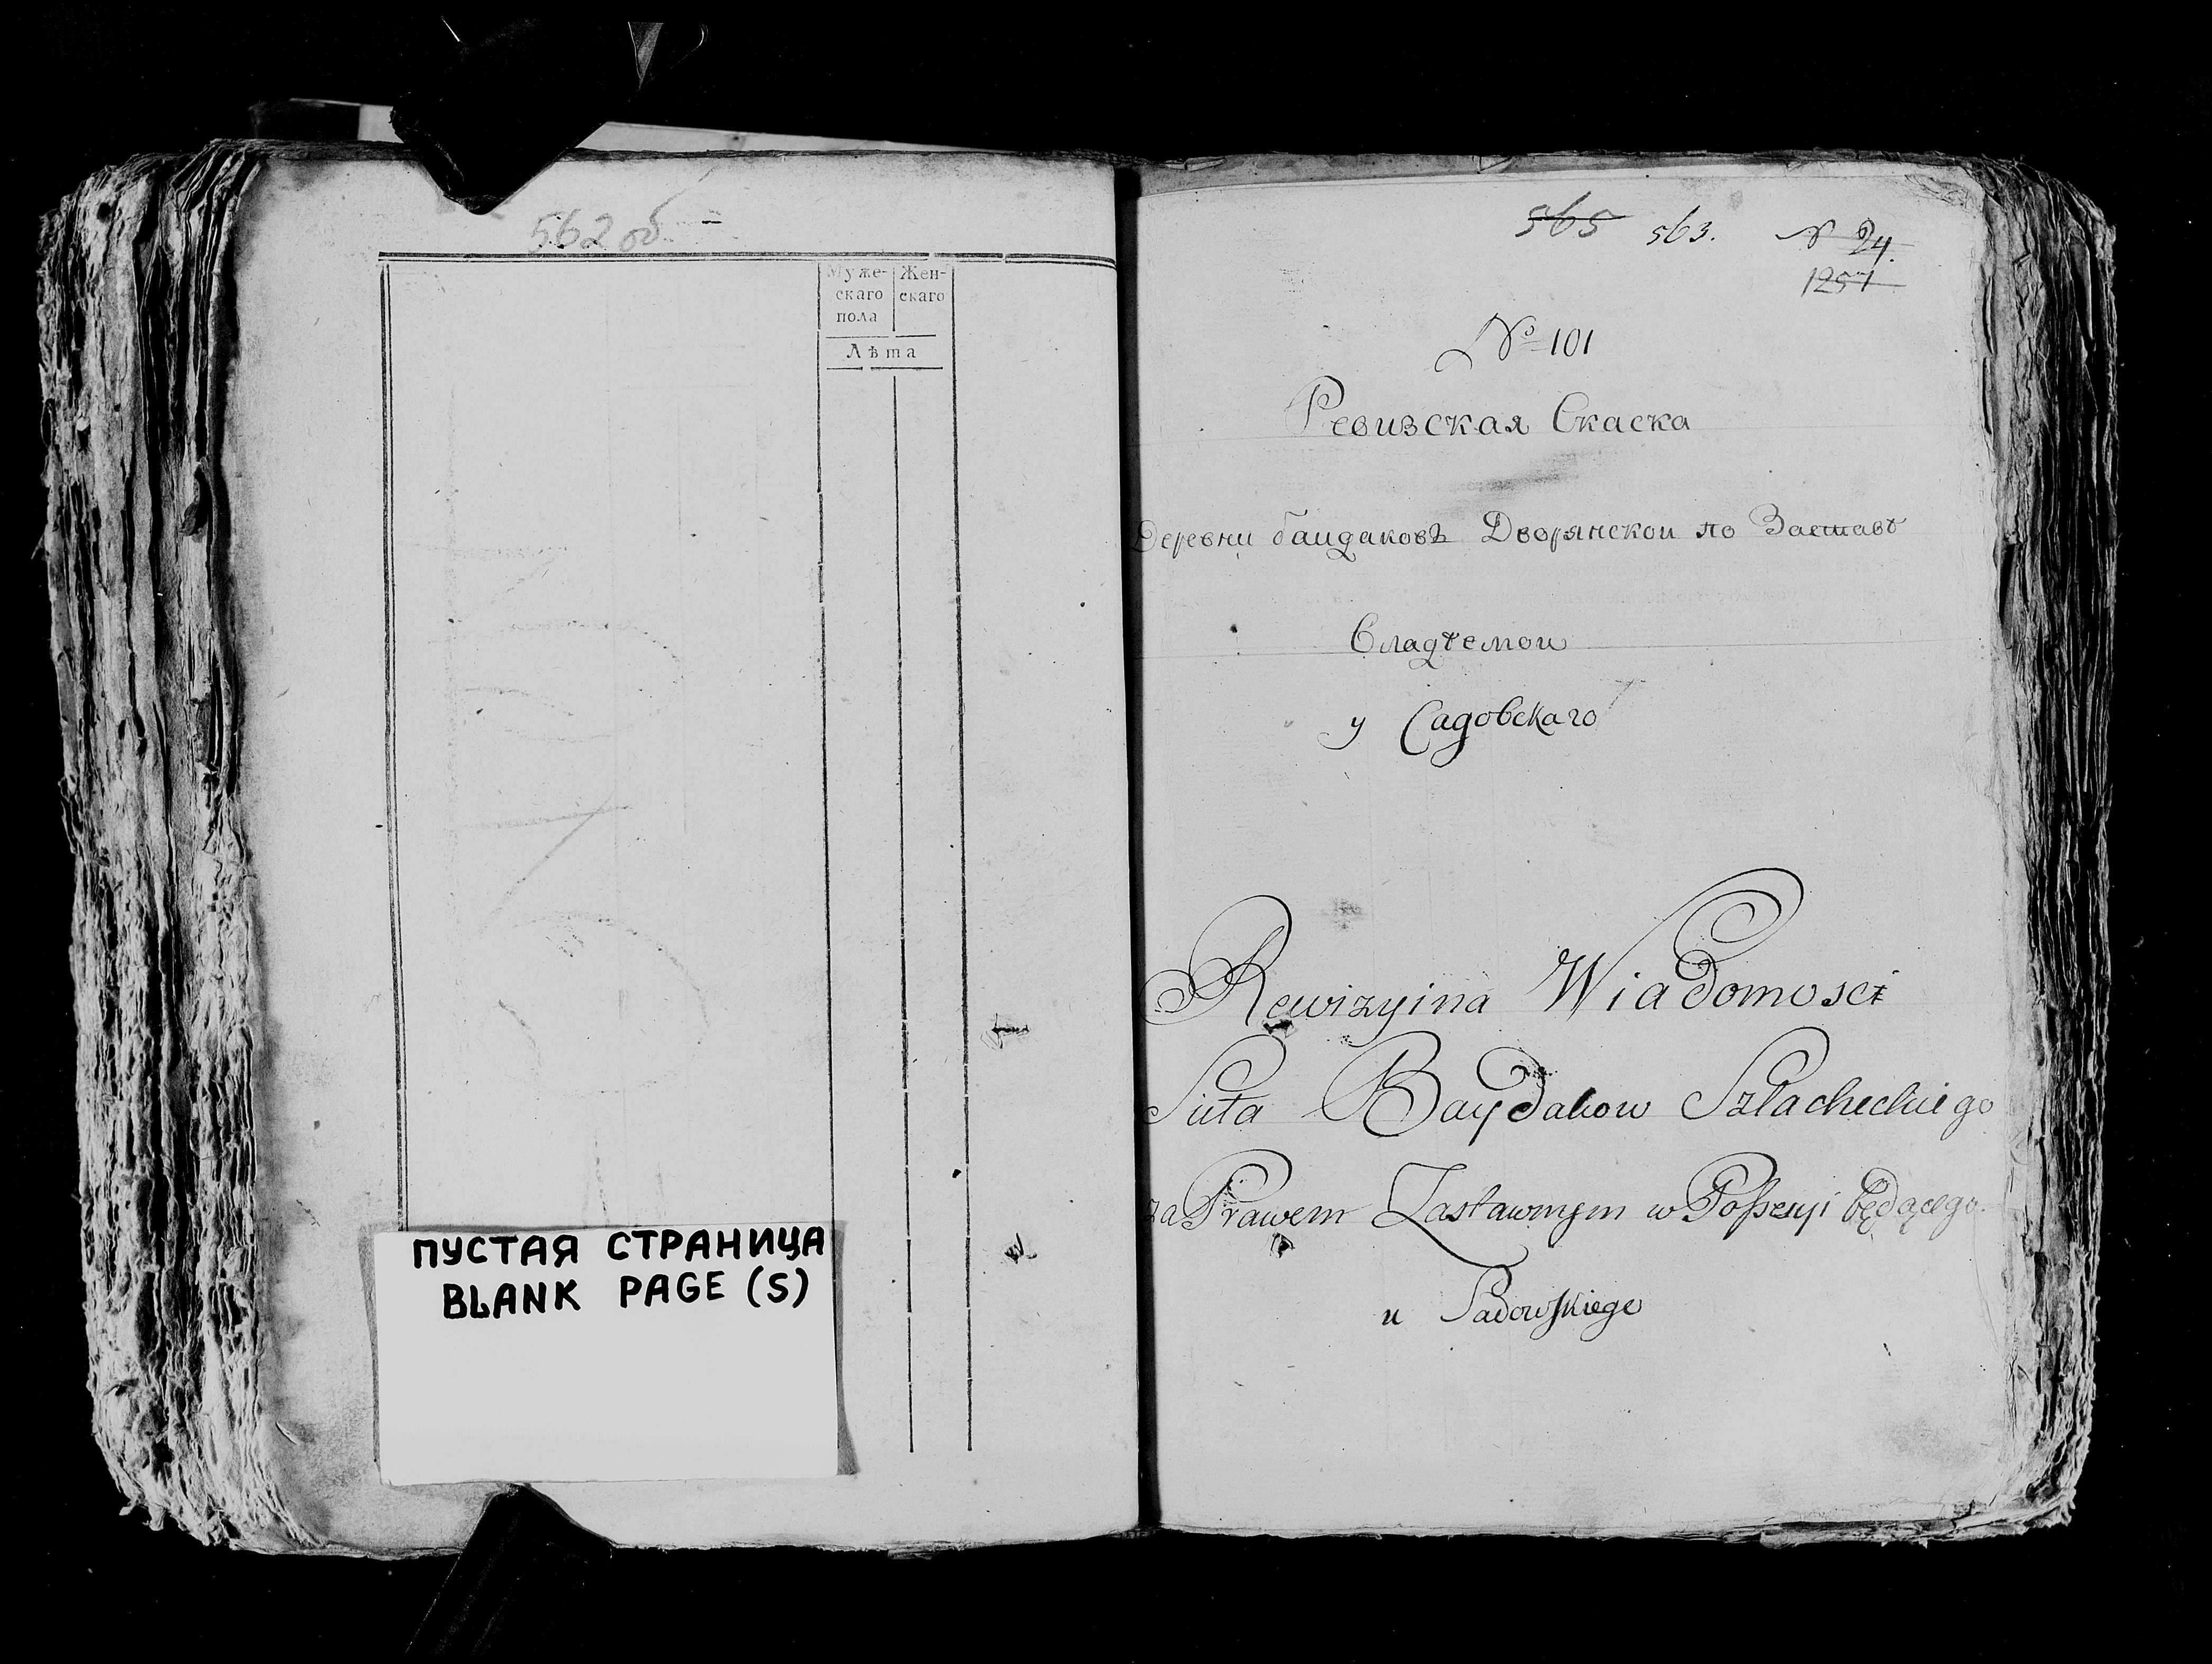 562 об
Муже-
скаго
пола
Жен-
скаго
Лѣта
ПУСТАЯ СТРАНИЦА
BLANK PAGE (S)
565 563. N 24.
1257
№ 101
Ревизская Скаска
Деревни баидаковъ Дворянскои по Заставѣ
Владѣемои
у Садовскаго
Rewizyina Wiadomosci
Siuła Baydakow Szlacheckiego
za Prawem Zastawnym w Possesyi będącego.
u Sadowskiego